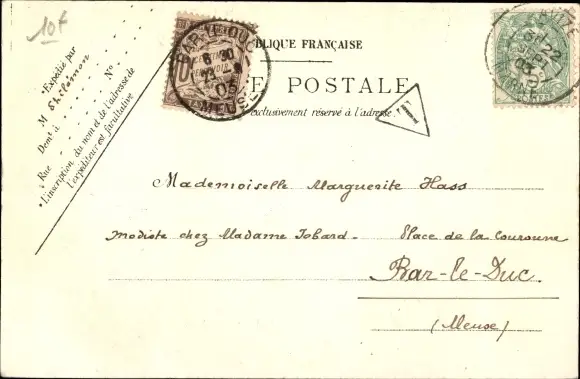 10f
BLIQUE FRANÇAISE
E POSTALE
exclusivement réservé à l'adresse.
T
BAR-LE-DUC
8 30
22
05
MEUSE
22
05
• Expédié par
M Philomon
Demt à
Rue No
• L'inscription du nom et de l'adresse de
l'expéditeur est facultative
Mademoiselle Marguerite Hass
modiste chez Madame Jobard - Place de la Couronne
Bar-le-Duc.
(Meuse)